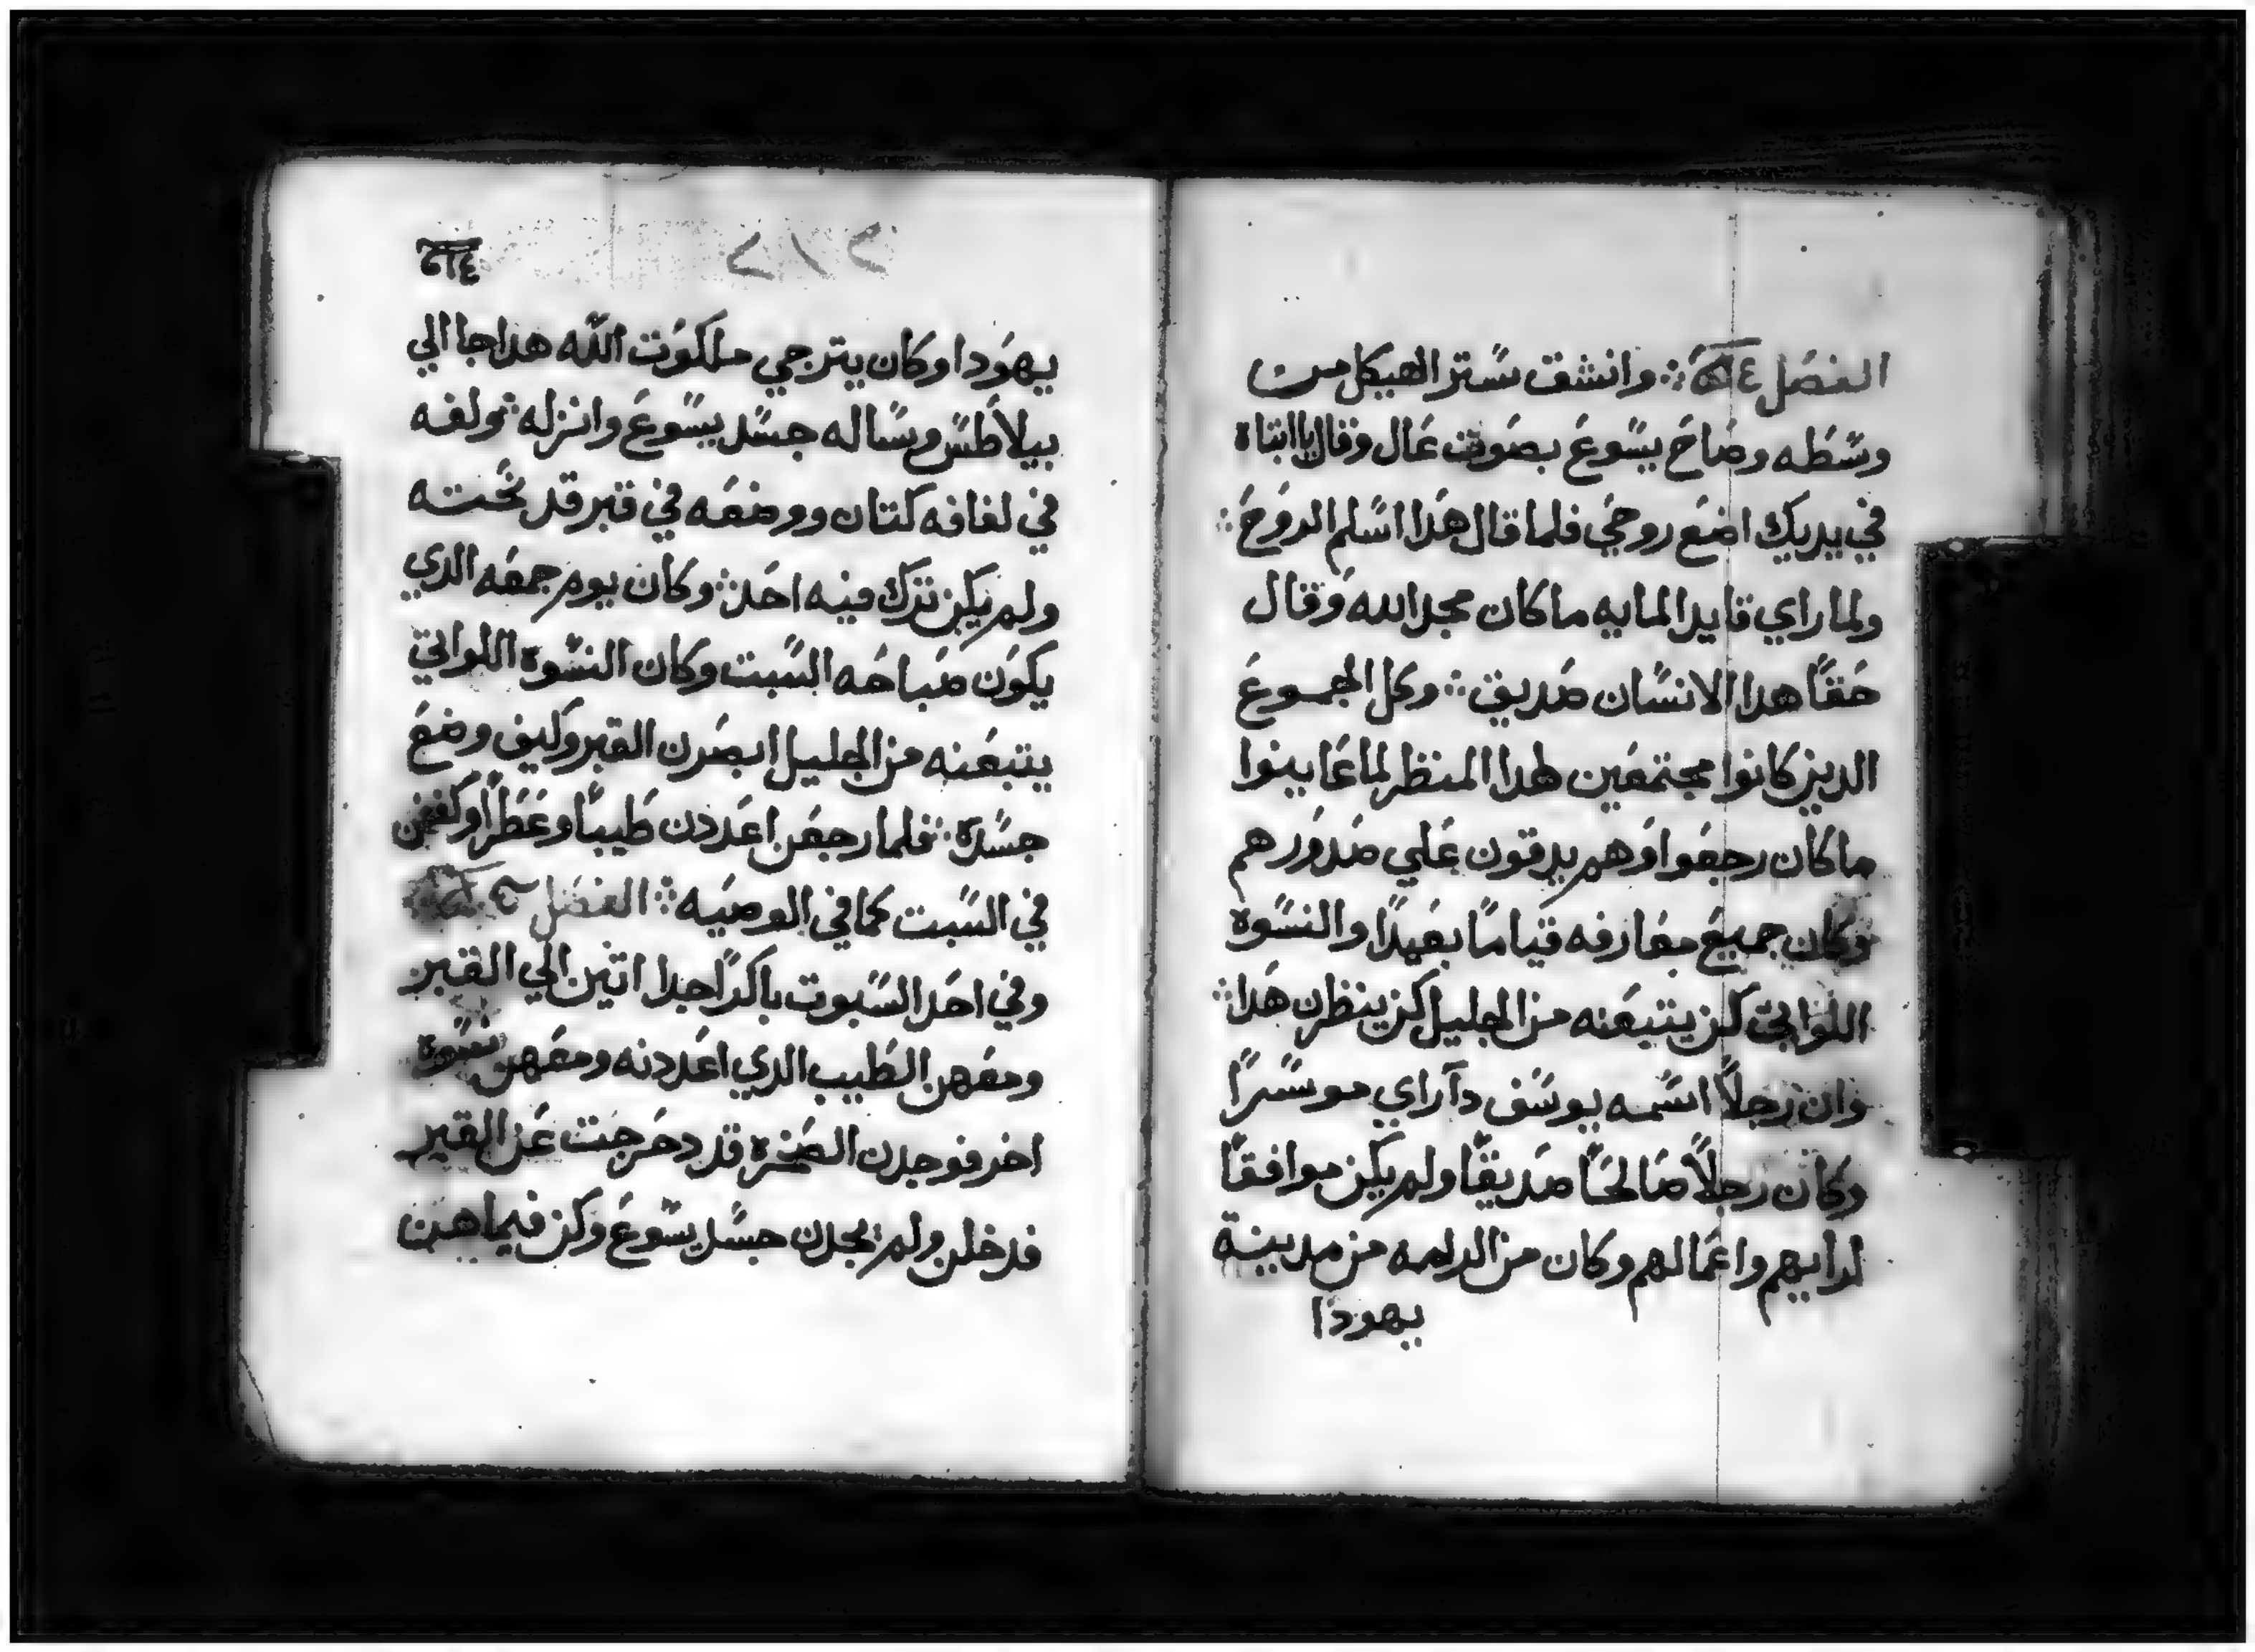 الفصل وانشق ستر الهيكل من
وسطه وصاح يسوع بصوت عال وقال يا ابتاه
في يديك اضع روحي فلما قال هدا اسلم الروح
ولما راي قايد المايه ما كان مجد الله وقال
حقًا هدا الانسان صديق وكل الجموع
الدين كانوا مجتمعين لهدا المنظر لما عاينوا
ما كان رجعوا وهم يدقون علي صدورهم
وكان جميع معارفه قيامًا بعيدًا والنسوة
اللواتي كن يتبعنه من الجليل كن ينظرن هدا
وان رجلاً اسمه يوسف دا راي موسرًا
وكان رجلاً صالحًا صديقًا ولم يكن موافقًا
لرايهم واعمالهم وكان من الرامه من مدينة
يهودا
يهودا وكان يترجي ملكوت الله هدا جا الي
بيلاطس وساله جسد يسوع وانزله ولفه
في لفافه كتان ووضعه في قبر قد نحته
ولم يكن ترك فيه احد وكان يوم جمعه الدي
يكون صباحه السبت وكان النسوة اللواتي
يتبعنه من الجليل ابصرن القبر وكيف وضع
جسدة فلما رجعن اعددن طيبًا وعطرًا وكففن
في السبت كما في الوصيه الفصل
وفي احد السبوت باكرًا جدا اتين الي القبر
ومعهن الطيب الدي اعددنه ومعهن نسوة
اخر فوجدن الصخره قد دحرجت عن القبر
فدخلن ولم يجدن جسد يسوع وكن فيما هن